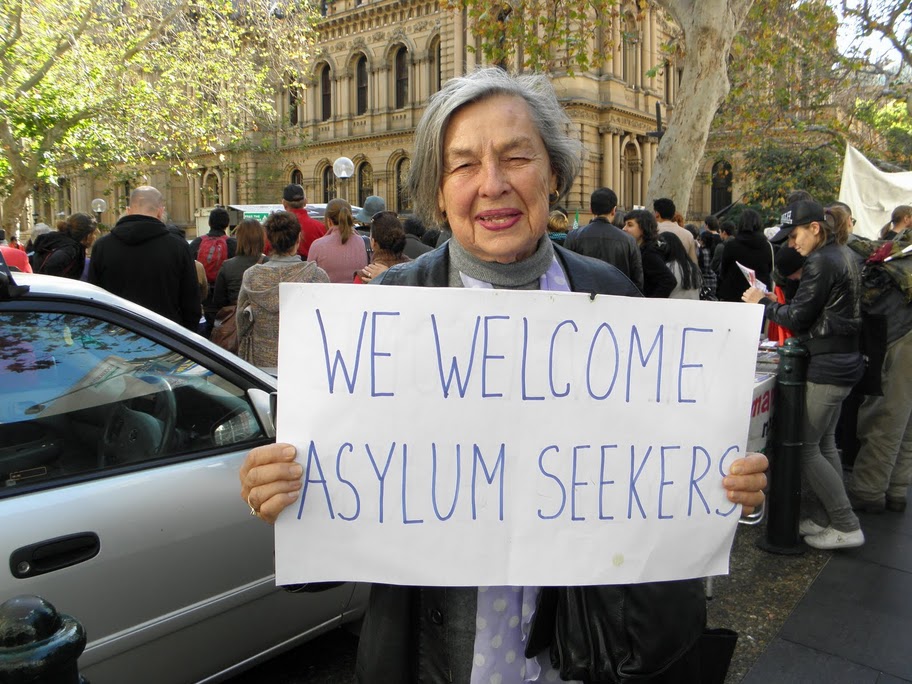 WE WELCOME
ASYLUM SEEKERS